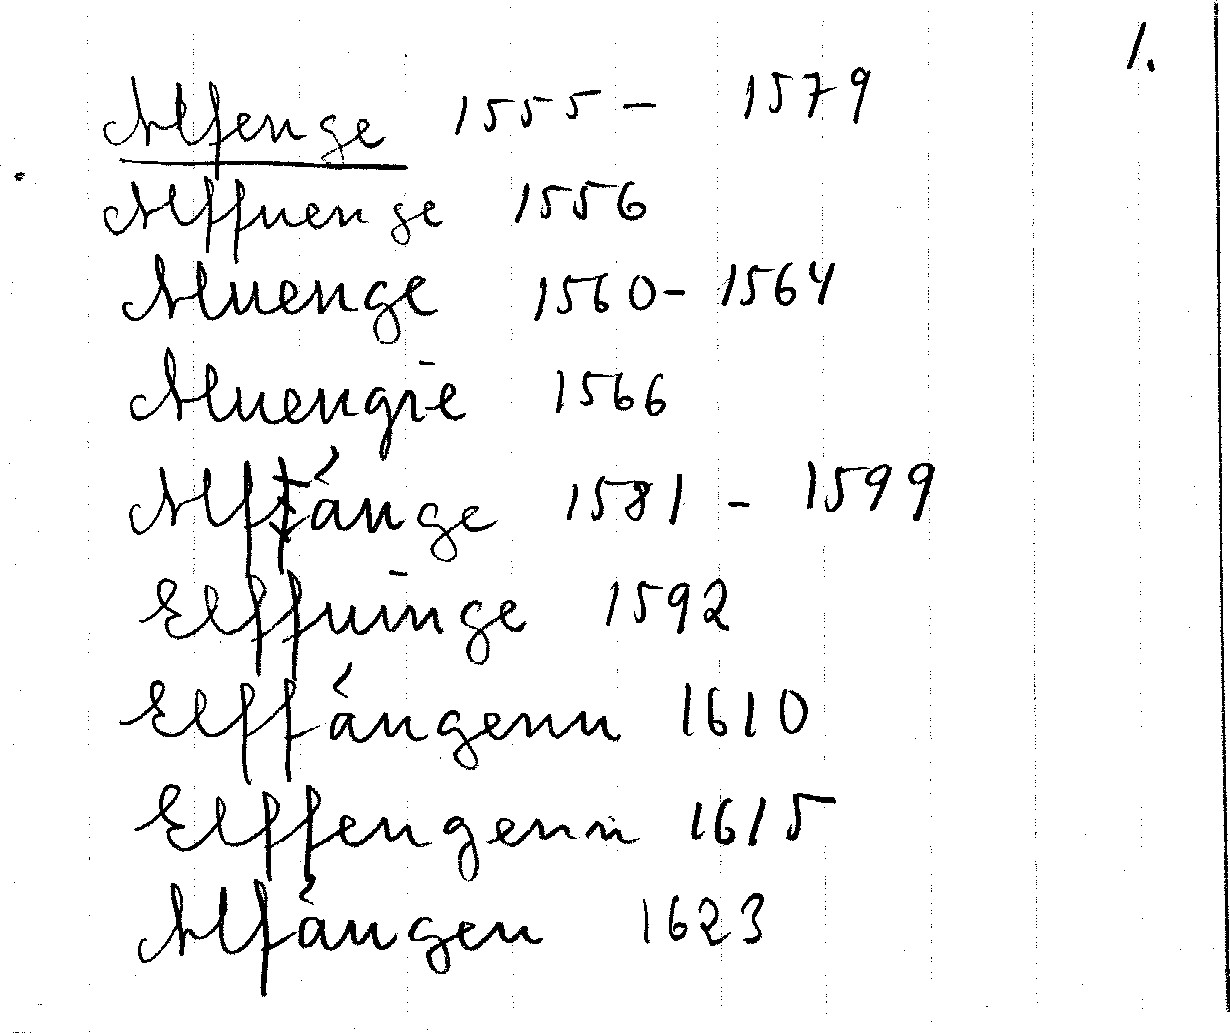 1.
Alfenge 1555 - 1579
Alffuenge 1556
Aluenge 1560 - 1564
Aluengie 1566
Alffånge 1581 - 1599
Elffuinge 1592
Elffångenn 1610
Elffengenn 1615
Alfången 1623